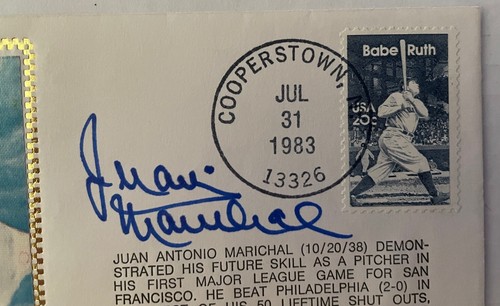 Babe Ruth
USA
20c
COOPERSTOWN,
JUL
31
1983
13326
Juan
Marichal
JUAN ANTONIO MARICHAL (10/20/38) DEMON-
STRATED HIS FUTURE SKILL AS A PITCHER IN
HIS FIRST MAJOR LEAGUE GAME FOR SAN
FRANCISCO. HE BEAT PHILADELPHIA (2-0) IN
OF HIS 50 LIFETIME SHUT OUTS